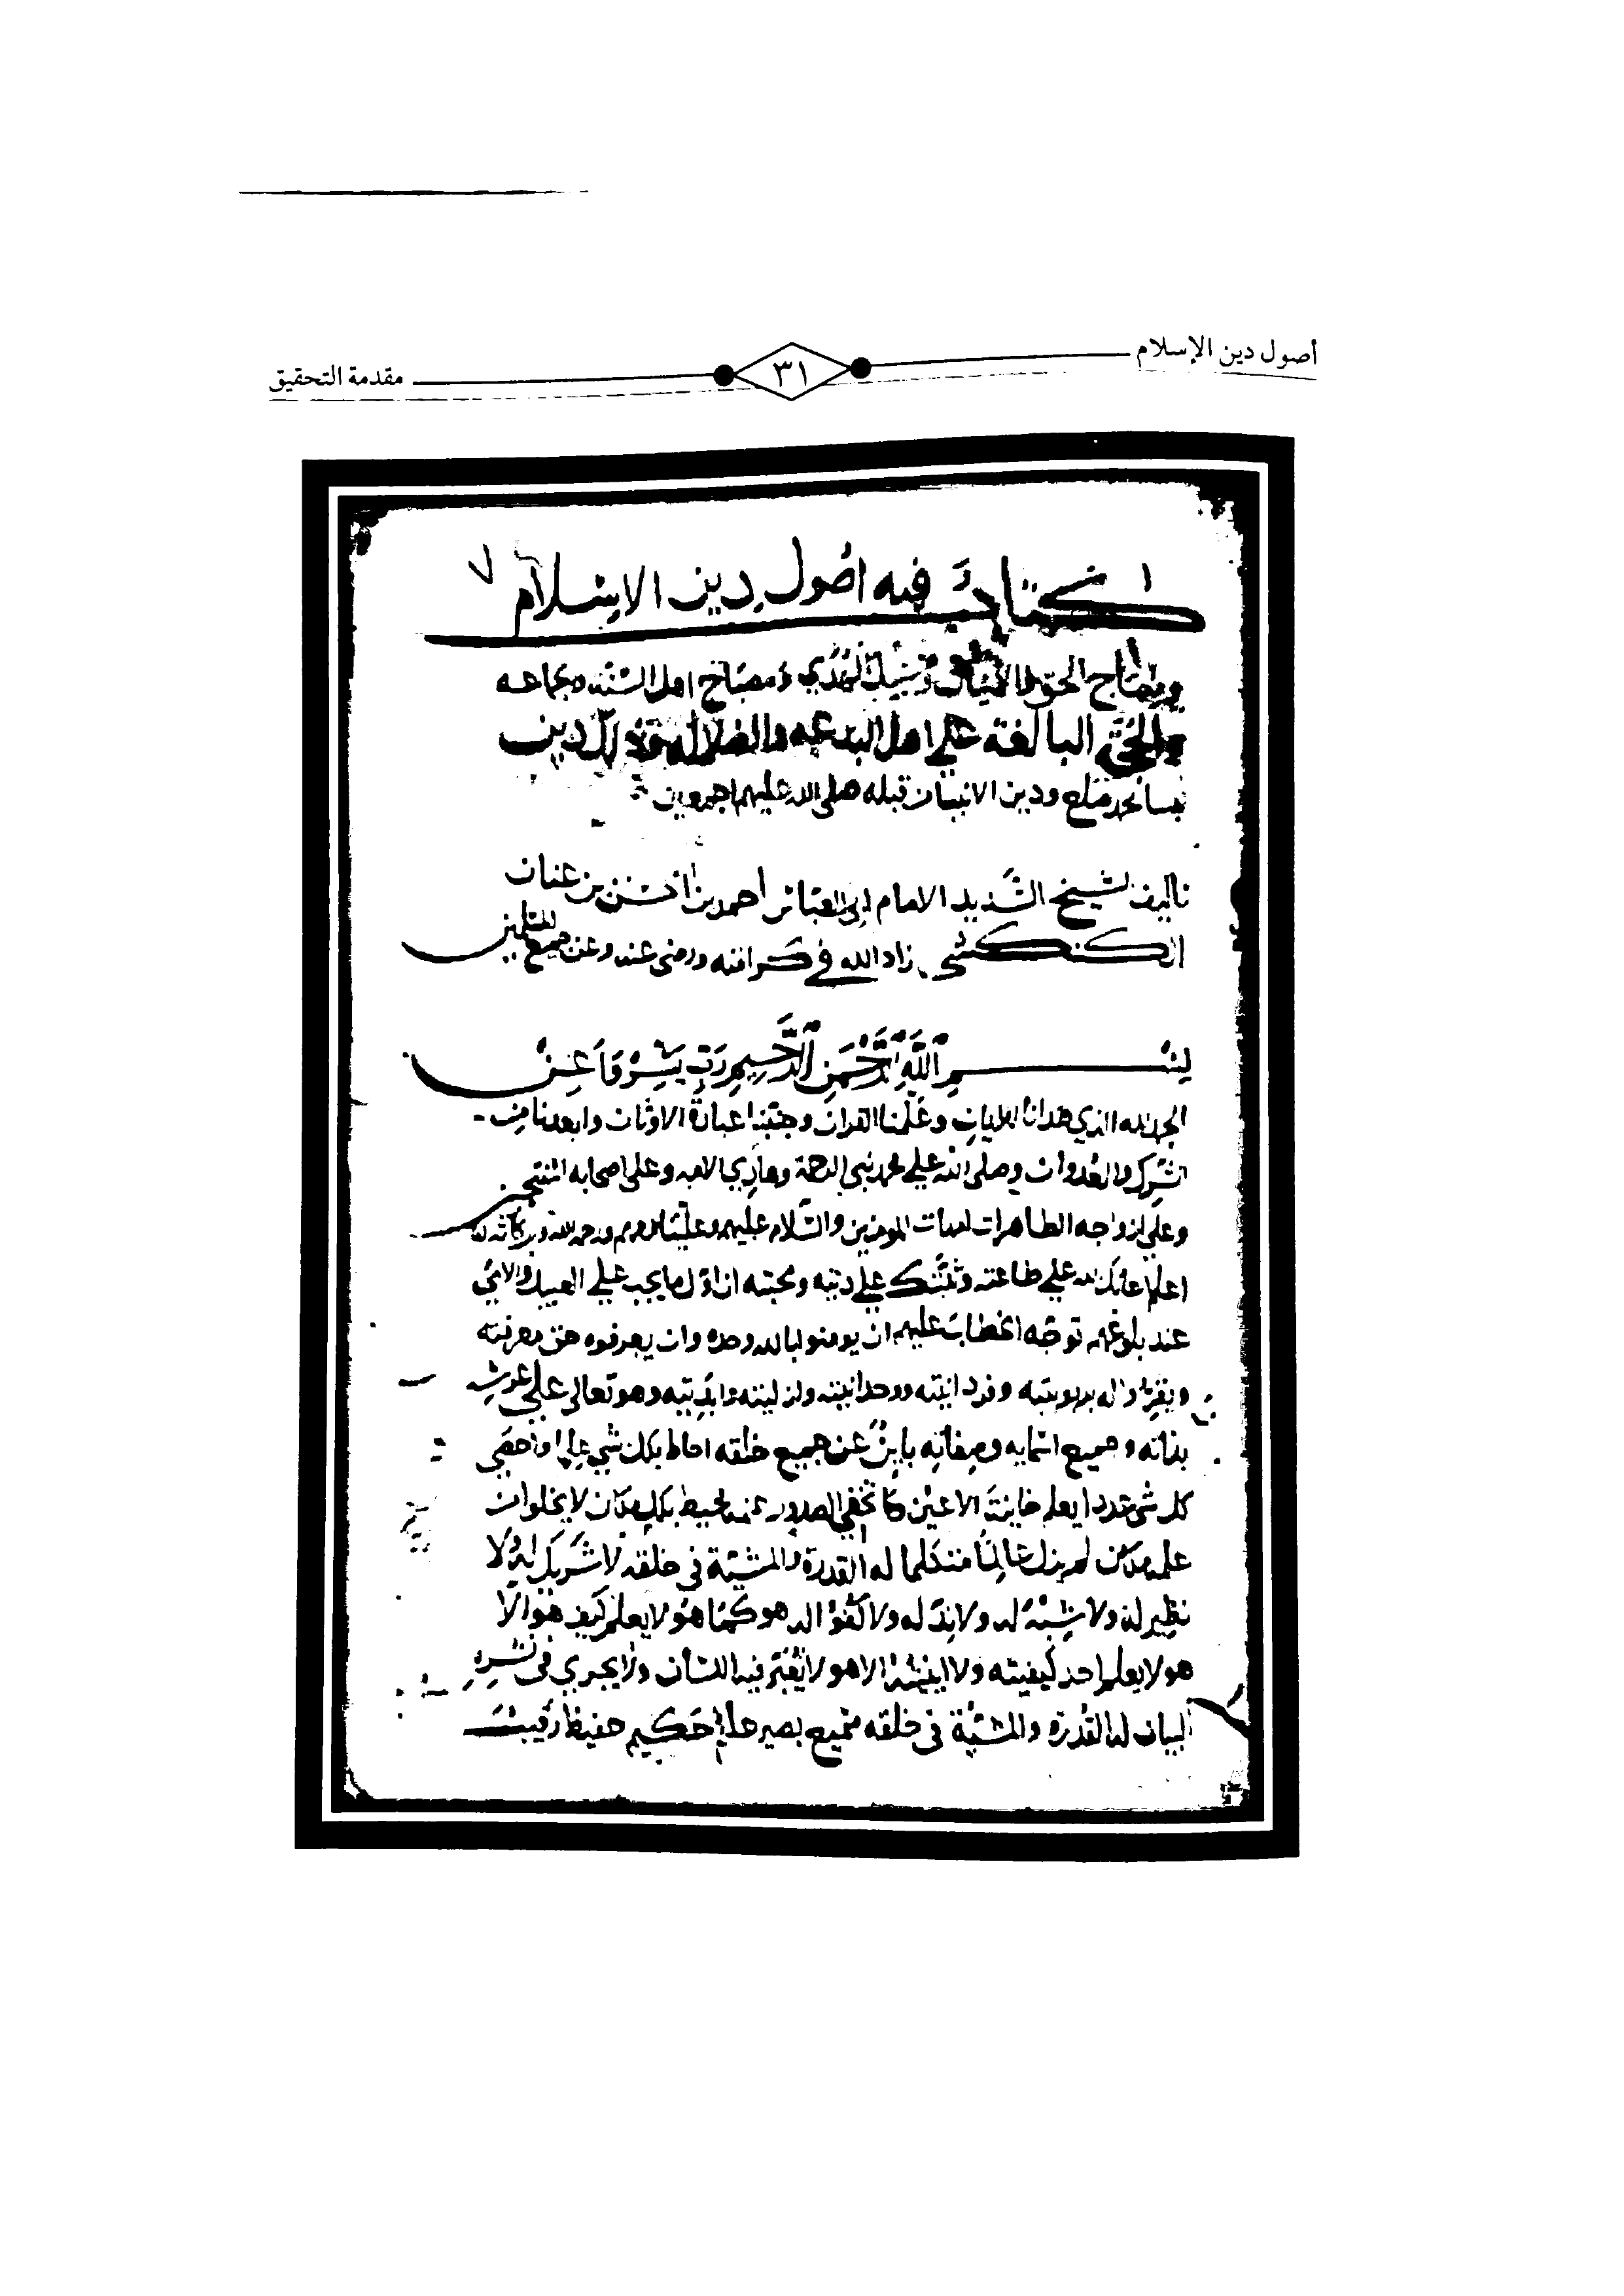 أصول دين الإسلام
٣١
مقدمة التحقيق
كتاب فيه اصول دين الاسلام
الحق ومصباح اهل السنه
البالغة علي اهل البدعه والضلاله دين
ودين الانبيا من قبله صلى الله عليهم اجمعين
تاليف الشيخ السديد الامام ابي العباس احمد بن عنان
زاد الله في كرامته ورضي عنه وعن جميع المسلمين
بسم الله الرحمن الرحيم رب يسر وأعن
الحمد لله الذي هدانا للايمان وعلمنا القران وجنبنا عبادة الاوثان وابعدنا من
الشرك والعدوان وصلى الله علي محمد نبي الرحمة وهادي الامه وعلى اصحابه المنتخبين
وعلي ازواجه الطاهرات امهات المومنين والسلام عليهم وعلينا ورحمة الله وبركاته
اعلم اعانك الله علي طاعته وثبتك علي دينه ومحبته ان اول ما يجب علي العبيد والاماء
عند بلوغهم توجه الخطاب عليهم ان يومنوا بالله وحده وان يعرفوه حق معرفته
ويقروا له بربوبيته وفردانيته ووحدانيته وازليته وابديته وهو تعالى علي عرشه
بذاته وجميع اسمايه وصفاته باين عن جميع خلقه احاط بكل شي علما واحصي
كل شي عددا يعلم خاينة الاعين وما تخفي الصدور علمه محيط بكل مكان لا يخلوا من
علمه مكان لم يزل عالما متكلما له القدرة والمشية في خلقه لا شريك له ولا
نظير له ولا شبه له ولا ند له ولا كفو الله هو كما هو لا يعلم كيف هو الا
هو لا يعلم احد كيفيته ولا اينيته الا هو لا يعبر فيه اللسان ولا يجري في
البيان له القدرة والمشية في خلقه سميع بصير عليم حكيم حفيظ رقيب